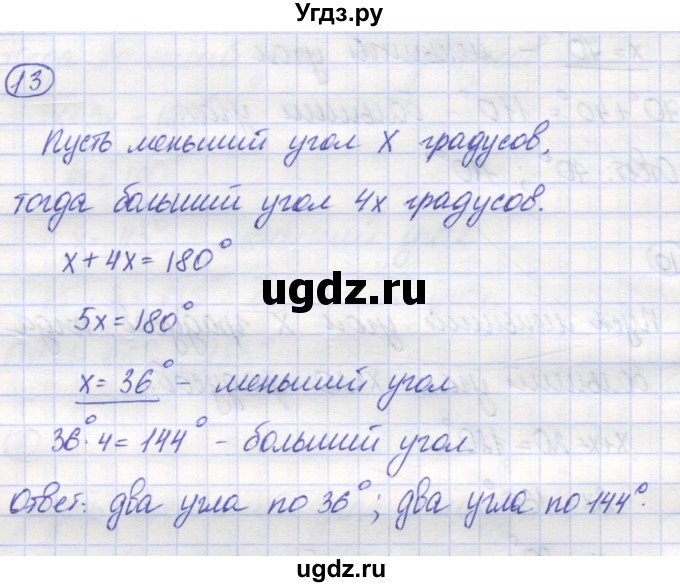 Угдз.ру
13
Пусть меньший угол X градусов,
тогда больший угол 4x градусов.
x + 4x = 180°
ugdz.ru
5x = 180°
x = 36° - меньший угол
36°·4 = 144° - больший угол
Ответ: два угла по 36°; два угла по 144°.
ugdz.ru